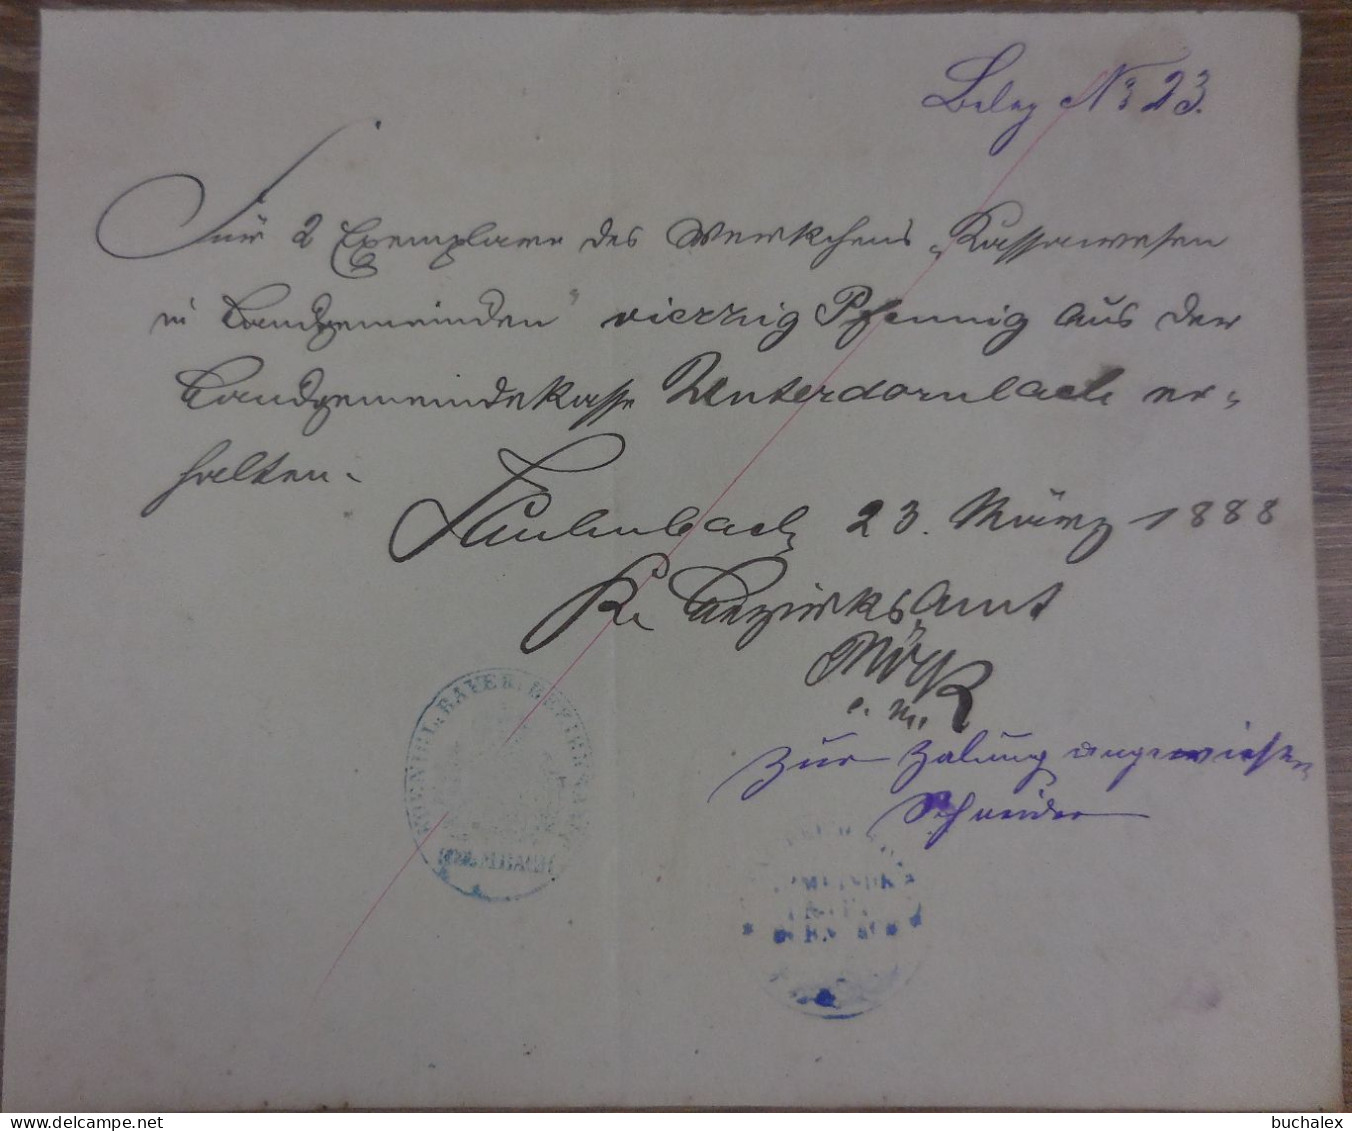 Beleg No 23.
Für 2 Exemplare des Werkchens „Kassawesen
in Landgemeinden" vierzig Pfennig aus der
Landgemeindekasse Unterdornlach er-
halten.
Kulmbach 23. März 1888
K. Bezirksamt
zur Zalung angewiesen
Schneider
KOENIGL. BAYER. BEZIRKSAMT
KULMBACH
buchalex